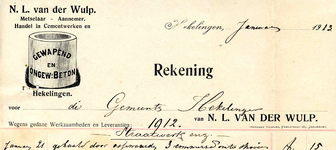 N. L. van der Wulp.
Metselaar - Aannemer.
Handel in Cementwerken en
GEWAPEND
EN
ONGEW: BETON
Hekelingen.
Hekelingen, Januari 1913
Rekening
voor die Gemeente Hekelingen
van N. L. VAN DER WULP.
Wegens gedane Werkzaamheden en Leverantiën 1912.
Straatwerk enz.
Januarij 21 gehaald door 3